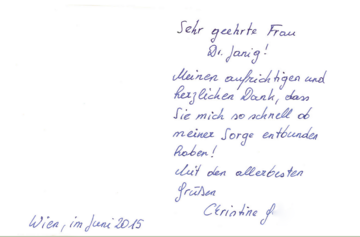 Sehr geehrte Frau
Dr. Janig!
Meinen aufrichtigen und
herzlichen Dank, dass
Sie mich so schnell ob
meiner Sorge entbunden
haben!
Mit den allerbesten
Grüßen
Christine G.
Wien, im Juni 2015